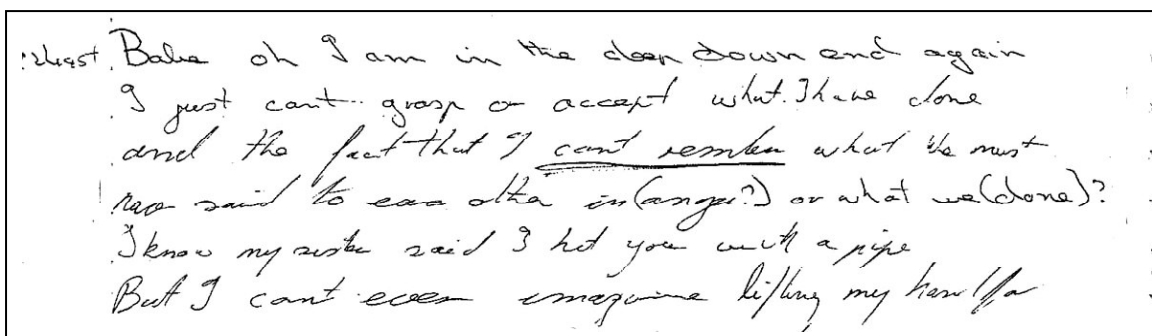 Babe oh I am in the deep down end again
I just cant grasp or accept what I have done
and the fact that I cant rember what We must
have said to eac other in (anger?) or what we (done)?
I know my sister said I hit you with a pipe
But I cant even imagine lifting my hand